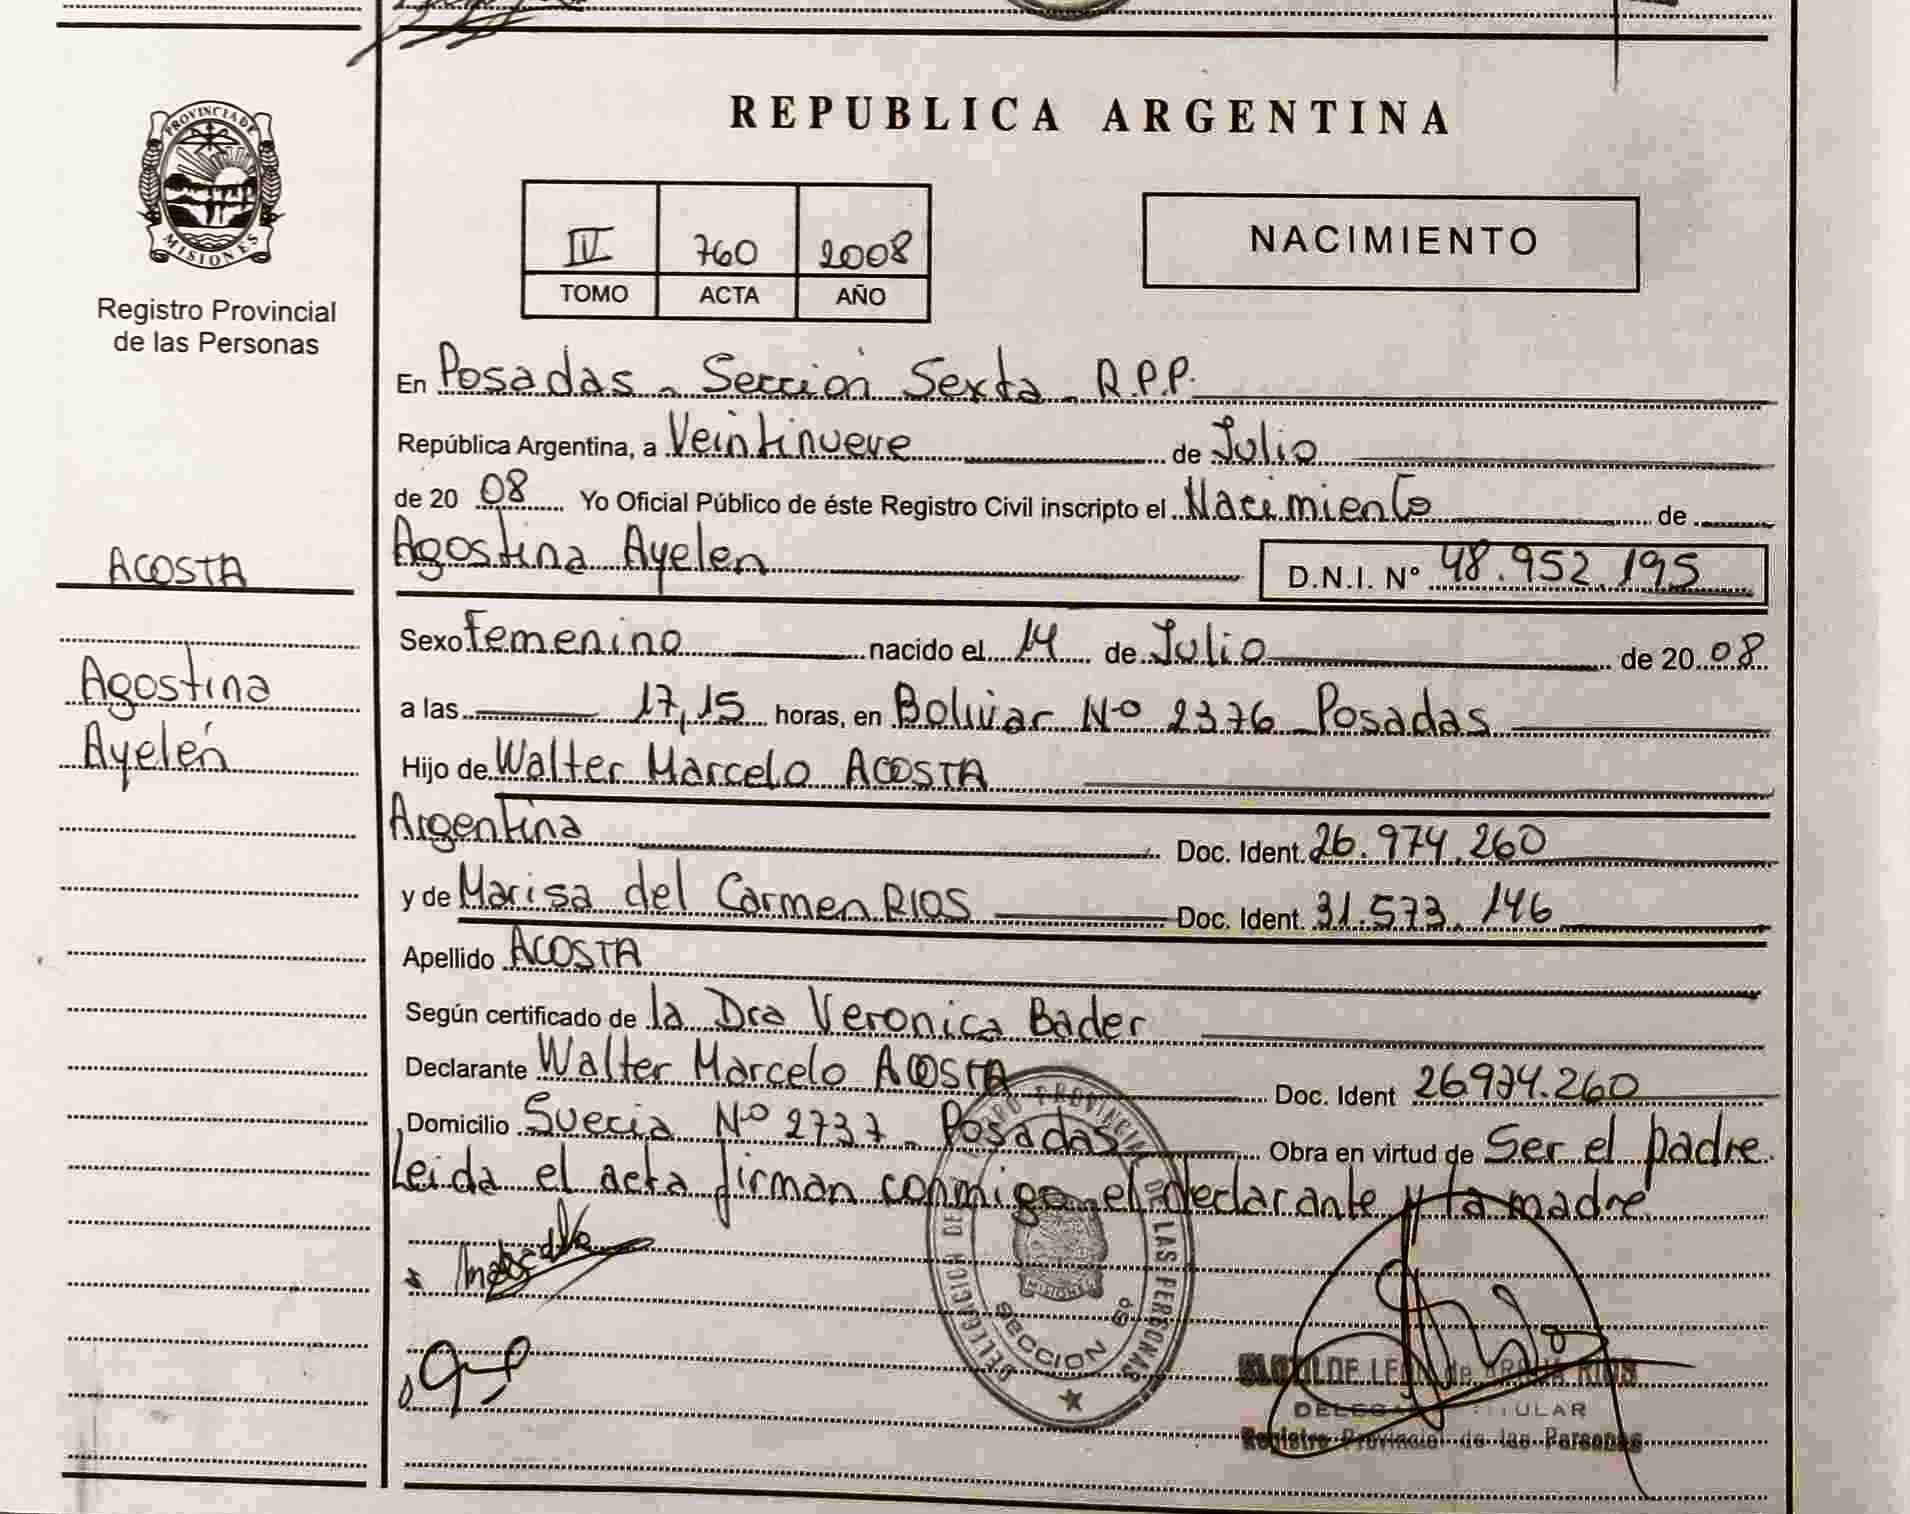 PROVINCIA DE
MISIONES
Registro Provincial
de las Personas
ACOSTA
Agostina
Ayelén
REPUBLICA ARGENTINA
IV 760 2008
TOMO ACTA AÑO
NACIMIENTO
En Posadas - Sección Sexta - R.P.P.
República Argentina, a Veintinueve de Julio
de 20 08 Yo Oficial Público de éste Registro Civil inscripto el Nacimiento de
Agostina Ayelen D.N.I. Nº 48.952.195
Sexo Femenino nacido el 14 de Julio de 20 08
a las 17,15 horas, en Bolivar Nº 2376 - Posadas
Hijo de Walter Marcelo ACOSTA
Argentina Doc. Ident. 26.974.260
y de Marisa del Carmen RIOS Doc. Ident. 31.573.146
Apellido ACOSTA
Según certificado de la Dra Veronica Bader
Declarante Walter Marcelo ACOSTA Doc. Ident 26974.260
Domicilio Suecia Nº 2737 - Posadas Obra en virtud de Ser el padre
Leida el acta firman conmigo el declarante y la madre
PROVINCIAL DE LAS PERSONAS
SECCION 6º
RIOS
TITULAR
Registro Provincial de las Personas